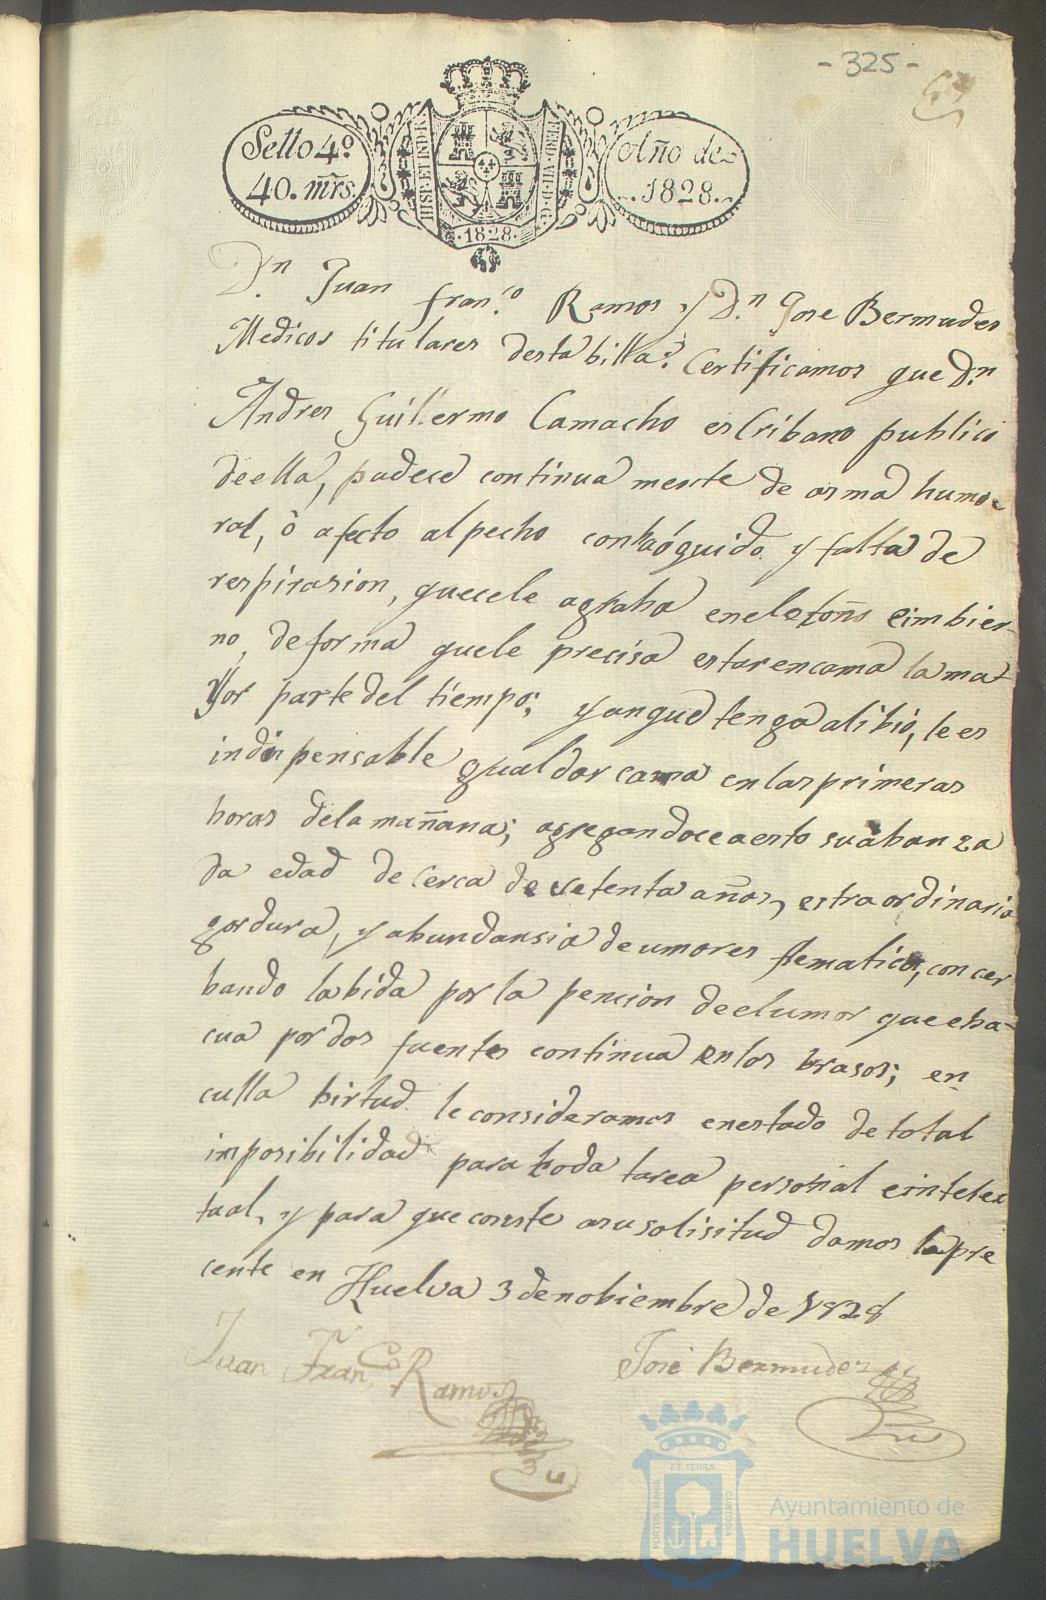 - 325 -
Sello 4º
40. mrs.
HISP. ET IND. R.
FERD. VII. D. G.
1828.
Año de
1828.
Dn Juan Franco Ramos y Dn Jose Bermudes
Medicos titulares desta billa: Certificamos que Dn
Andres Guillermo Camacho escribano publico
de ella, padece continua mente de asma humo
ral, ò afecto al pecho con y falta de
respirasion, que cele agraba en el otoño e imbier
no, de forma que le precisa estar en cama la ma
yor parte del tiempo; y anque tenga alibio, le es
indispensable gualdar cama en las primeras
horas de la mañana; agregandoce a esto su abanza
da edad de cerca de setenta años, estraordinaria
gordura, y abundansia de umores flematicos, concer
bando la bida por la pencion de el umor que eba
cua por dos fuentes continua en los brasos; en
culla birtud le consideramos en estado de total
imposibilidad para toda tarea personal e intelec
tual, y para que conste a su solisitud damos la pre
cente en Huelva 3 de nobiembre de 1828
Juan Franco Ramos
José Bermudez
PORTUS MARIS ET TERRAE CUSTODIA
Ayuntamiento de
HUELVA